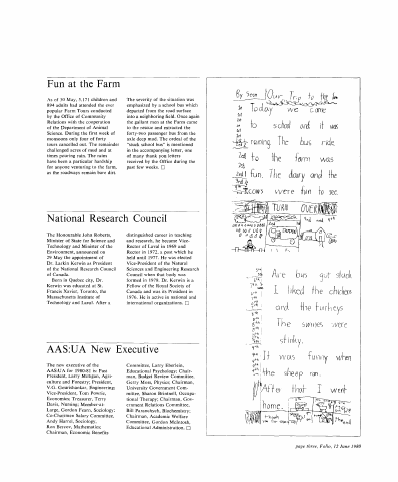 Fun at the Farm
As of 30 May, 3,171 children and
894 adults had attended the ever
popular Farm Tours conducted
by the Office of Community
Relations with the cooperation
of the Department of Animal
Science. During the first week of
monsoons only four of forty
tours cancelled out. The remainder
challenged acres of mud and at
times pouring rain. The rains
have been a particular hardship
for anyone venturing to the farm,
as the roadways remain bare dirt.
The severity of the situation was
emphasized by a school bus which
departed from the road surface
into a neighboring field. Once again
the gallant men at the Farm came
to the rescue and extracted the
forty-two passenger bus from the
axle deep mud. The ordeal of the
"stuck school bus" is mentioned
in the accompanying letter, one
of many thank you letters
received by the Office during the
past few weeks. □
National Research Council
The Honourable John Roberts,
Minister of State for Science and
Technology and Minister of the
Environment, announced on
29 May the appointment of
Dr. Larkin Kerwin as President
of the National Research Council
of Canada.
Born in Quebec city, Dr.
Kerwin was educated at St.
Francis Xavier, Toronto, the
Massachusetts Institute of
Technology and Laval. After a
distinguished career in teaching
and research, he became Vice-
Rector of Laval in 1969 and
Rector in 1972, a post which he
held until 1977. He was elected
Vice-President of the Natural
Sciences and Engineering Research
Council when that body was
formed in 1978. Dr. Kerwin is a
Fellow of the Royal Society of
Canada and was its President in
1976. He is active in national and
international organizations. □
AAS:UA New Executive
The new executive of the
AAS:UA for 1980/81 is: Past
President, Larry Milligan, Agri-
culture and Forestry; President,
V.G. Gourishankar, Engineering;
Vice-President, Tom Powrie,
Economics; Treasurer, Terry
Davis, Nursing; Members-at-
Large, Gordon Fearn, Sociology;
Co-Chairmen Salary Committee,
Andy Harrell, Sociology,
Ron Brever, Mathematics;
Chairman, Economic Benefits
Committee, Larry Eberlein,
Educational Psychology; Chair-
man, Budget Review Committee,
Gerry Moss, Physics; Chairman,
University Government Com-
mittee, Sharon Brintnell, Occupa-
tional Therapy; Chairman, Gov-
ernment Relations Committee,
Bill Paranchych, Biochemistry;
Chairman, Academic Welfare
Committee, Gordon McIntosh,
Educational Administration. □
By Our Trip to the
Today we came
to school and it was
raining. The bus ride
to the farm was
fun. The dairy and the
cows were fun to see.
TURN OVER
Are bus got stuck
I liked the chickens
and the turkeys
The swines were
stinky.
It was funny when
the sheep ran.
After that I went
home.
page three, Folio, 12 June 1980